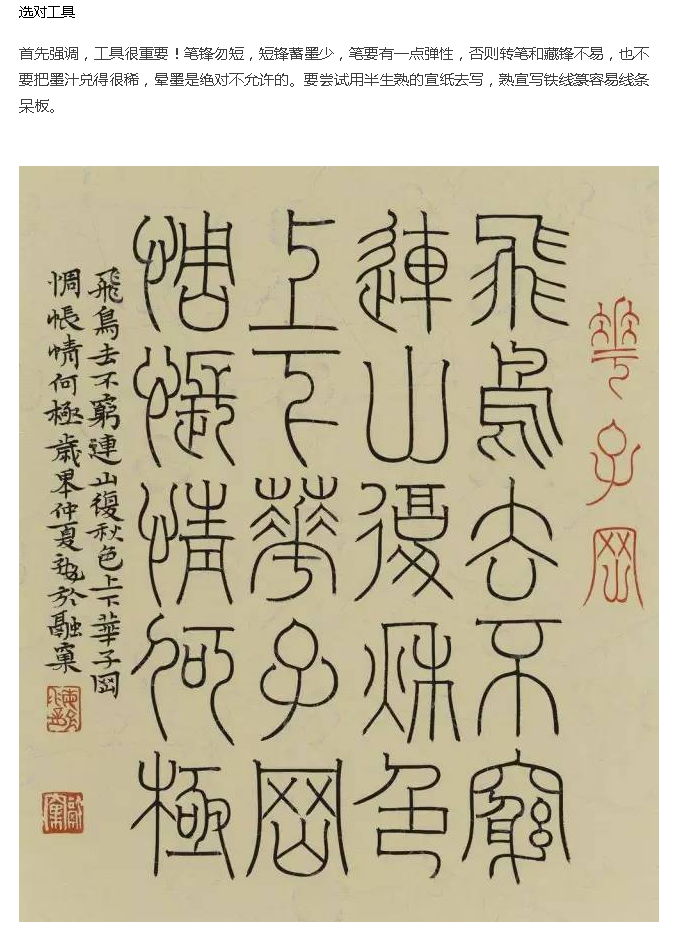 选对工具
首先强调，工具很重要！笔锋勿短，短锋蓄墨少，笔要有一点弹性，否则转笔和藏锋不易，也不
要把墨汁兑得很稀，晕墨是绝对不允许的。要尝试用半生熟的宣纸去写，熟宣写铁线篆容易线条
呆板。
華子岡
飛鳥去不窮
連山復秋色
上下華子岡
惆悵情何極
飛鳥去不窮連山復秋色上下華子岡
惆悵情何極歲畢仲夏於融窠